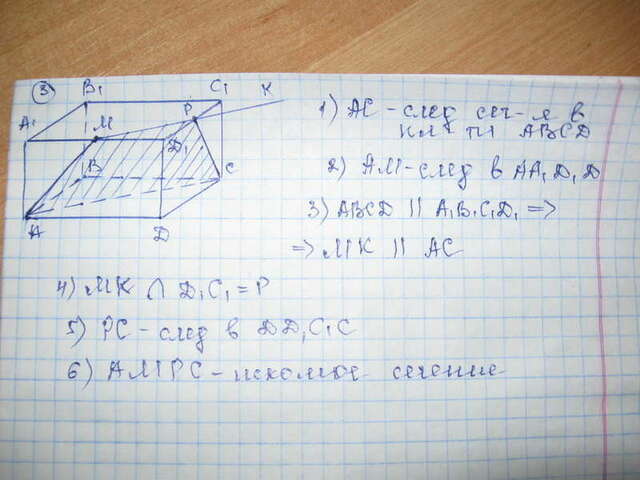 3
A₁
B₁
A
B
M
D
D₁
P
C₁
C
K
1) AC - след сеч-я в
пл ABCD
2) AM - след в AA₁D₁D
3) ABCD || A₁B₁C₁D₁ =>
=> MK || AC
4) MK ∩ D₁C₁ = P
5) PC - след в DD₁C₁C
6) AMPC - искомое сечение